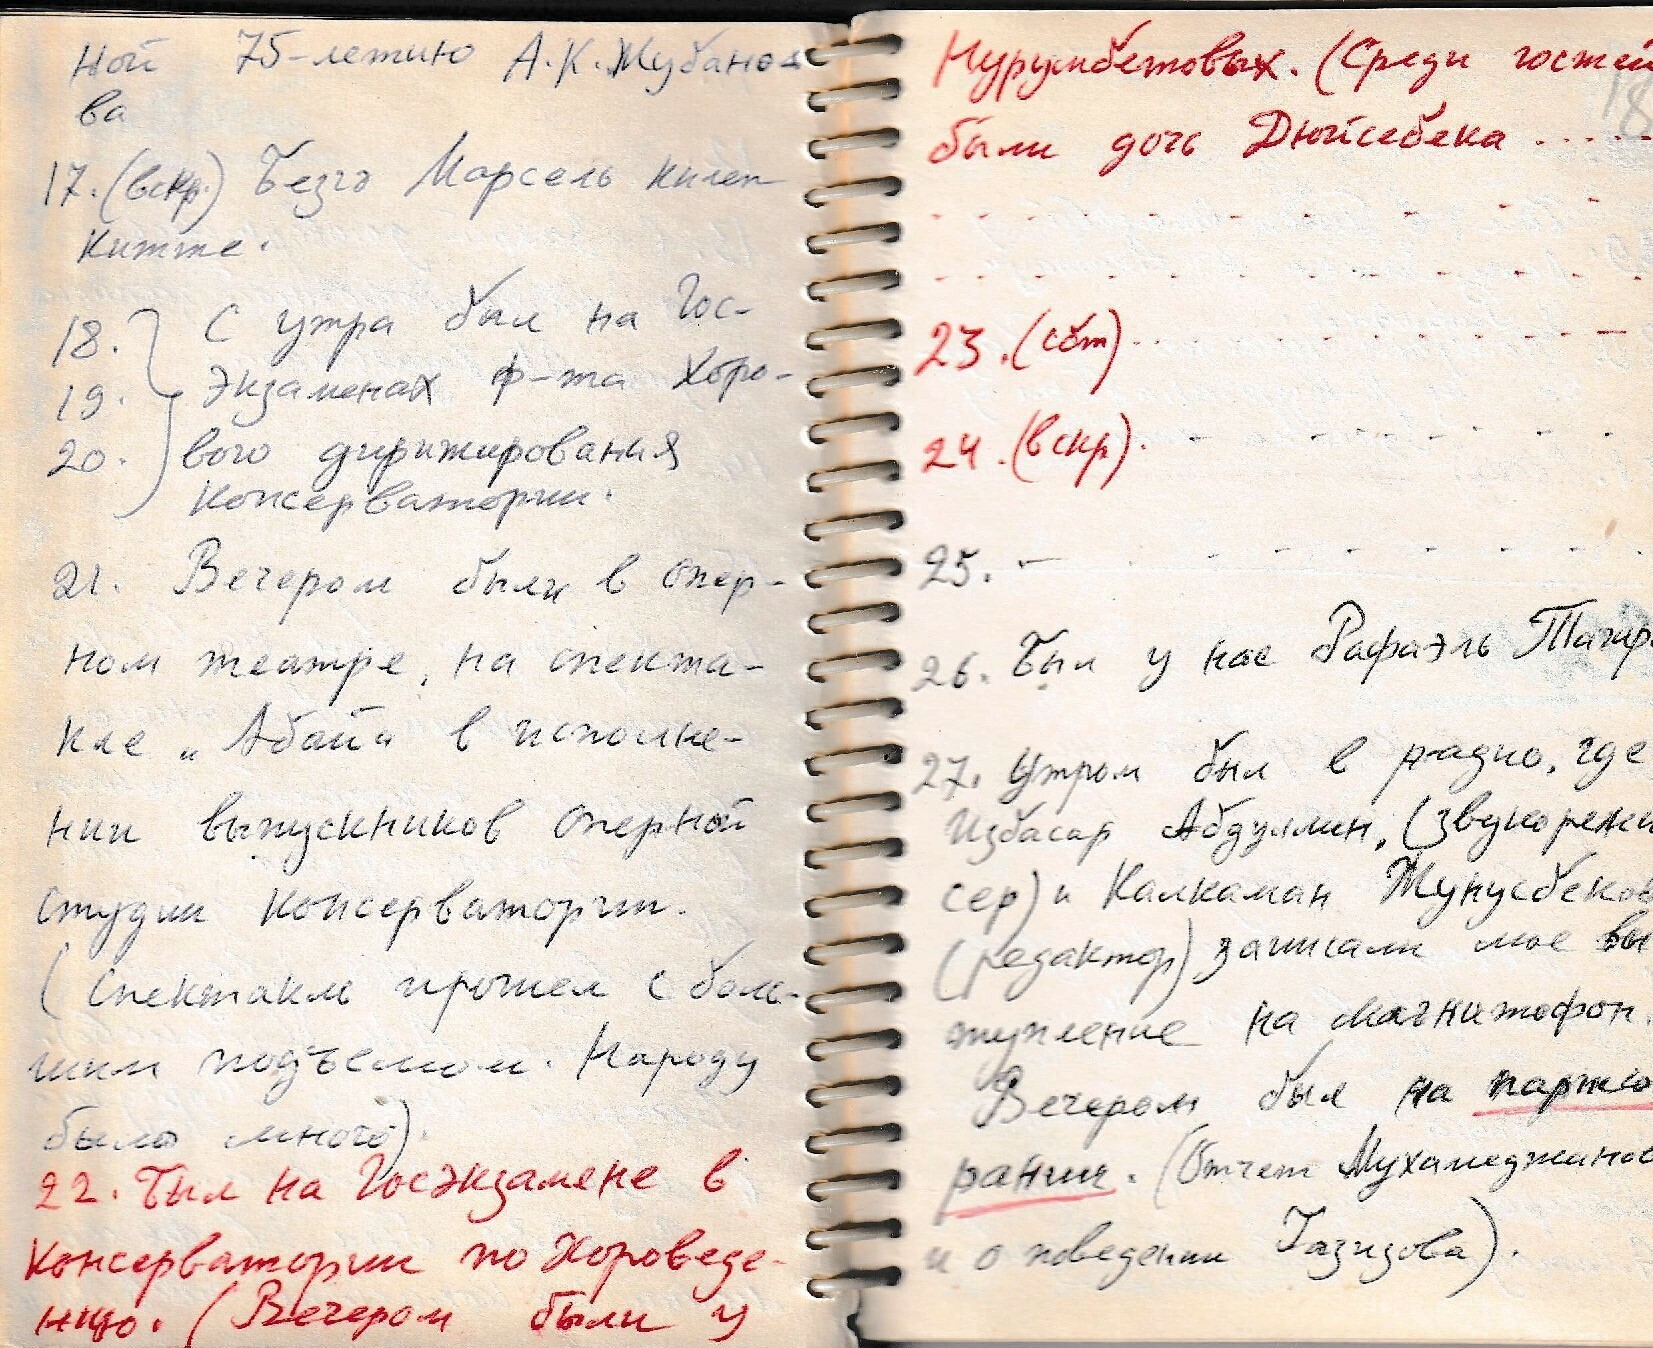 ной 75-летию А.К.Жубано-
ва
17. (вскр) Безгә Марсель килеп
китте.
18. С утра был на Гос-
19. экзаменах ф-та хоро-
20. вого дирижирования
консерватории.
21. Вечером были в опер-
ном театре, на спекта-
кле „Абай“ в исполне-
нии выпускников оперной
студии консерватории.
(Спектакль прошел с боль-
шим подъемом. Народу
было много).
22. Был на Госэкзамене в
консерватории по хороведе-
нию. (Вечером были у
Нурумбетовых. (Среди гостей
были дочь Дюйсебека .....
23. (сбт)
24. (вскр).
25. –
26. Был у нас Рафаэль Тагир
27. Утром был в радио, где
Избасар Абдуллин, (звукорежи
сер) и Калкаман Жунусбеков
(редактор) записали мое вы
тупление на магнитофон.
Вечером был на партсо
рании. (Отчет Мухамеджанов
и о поведении Газизова).